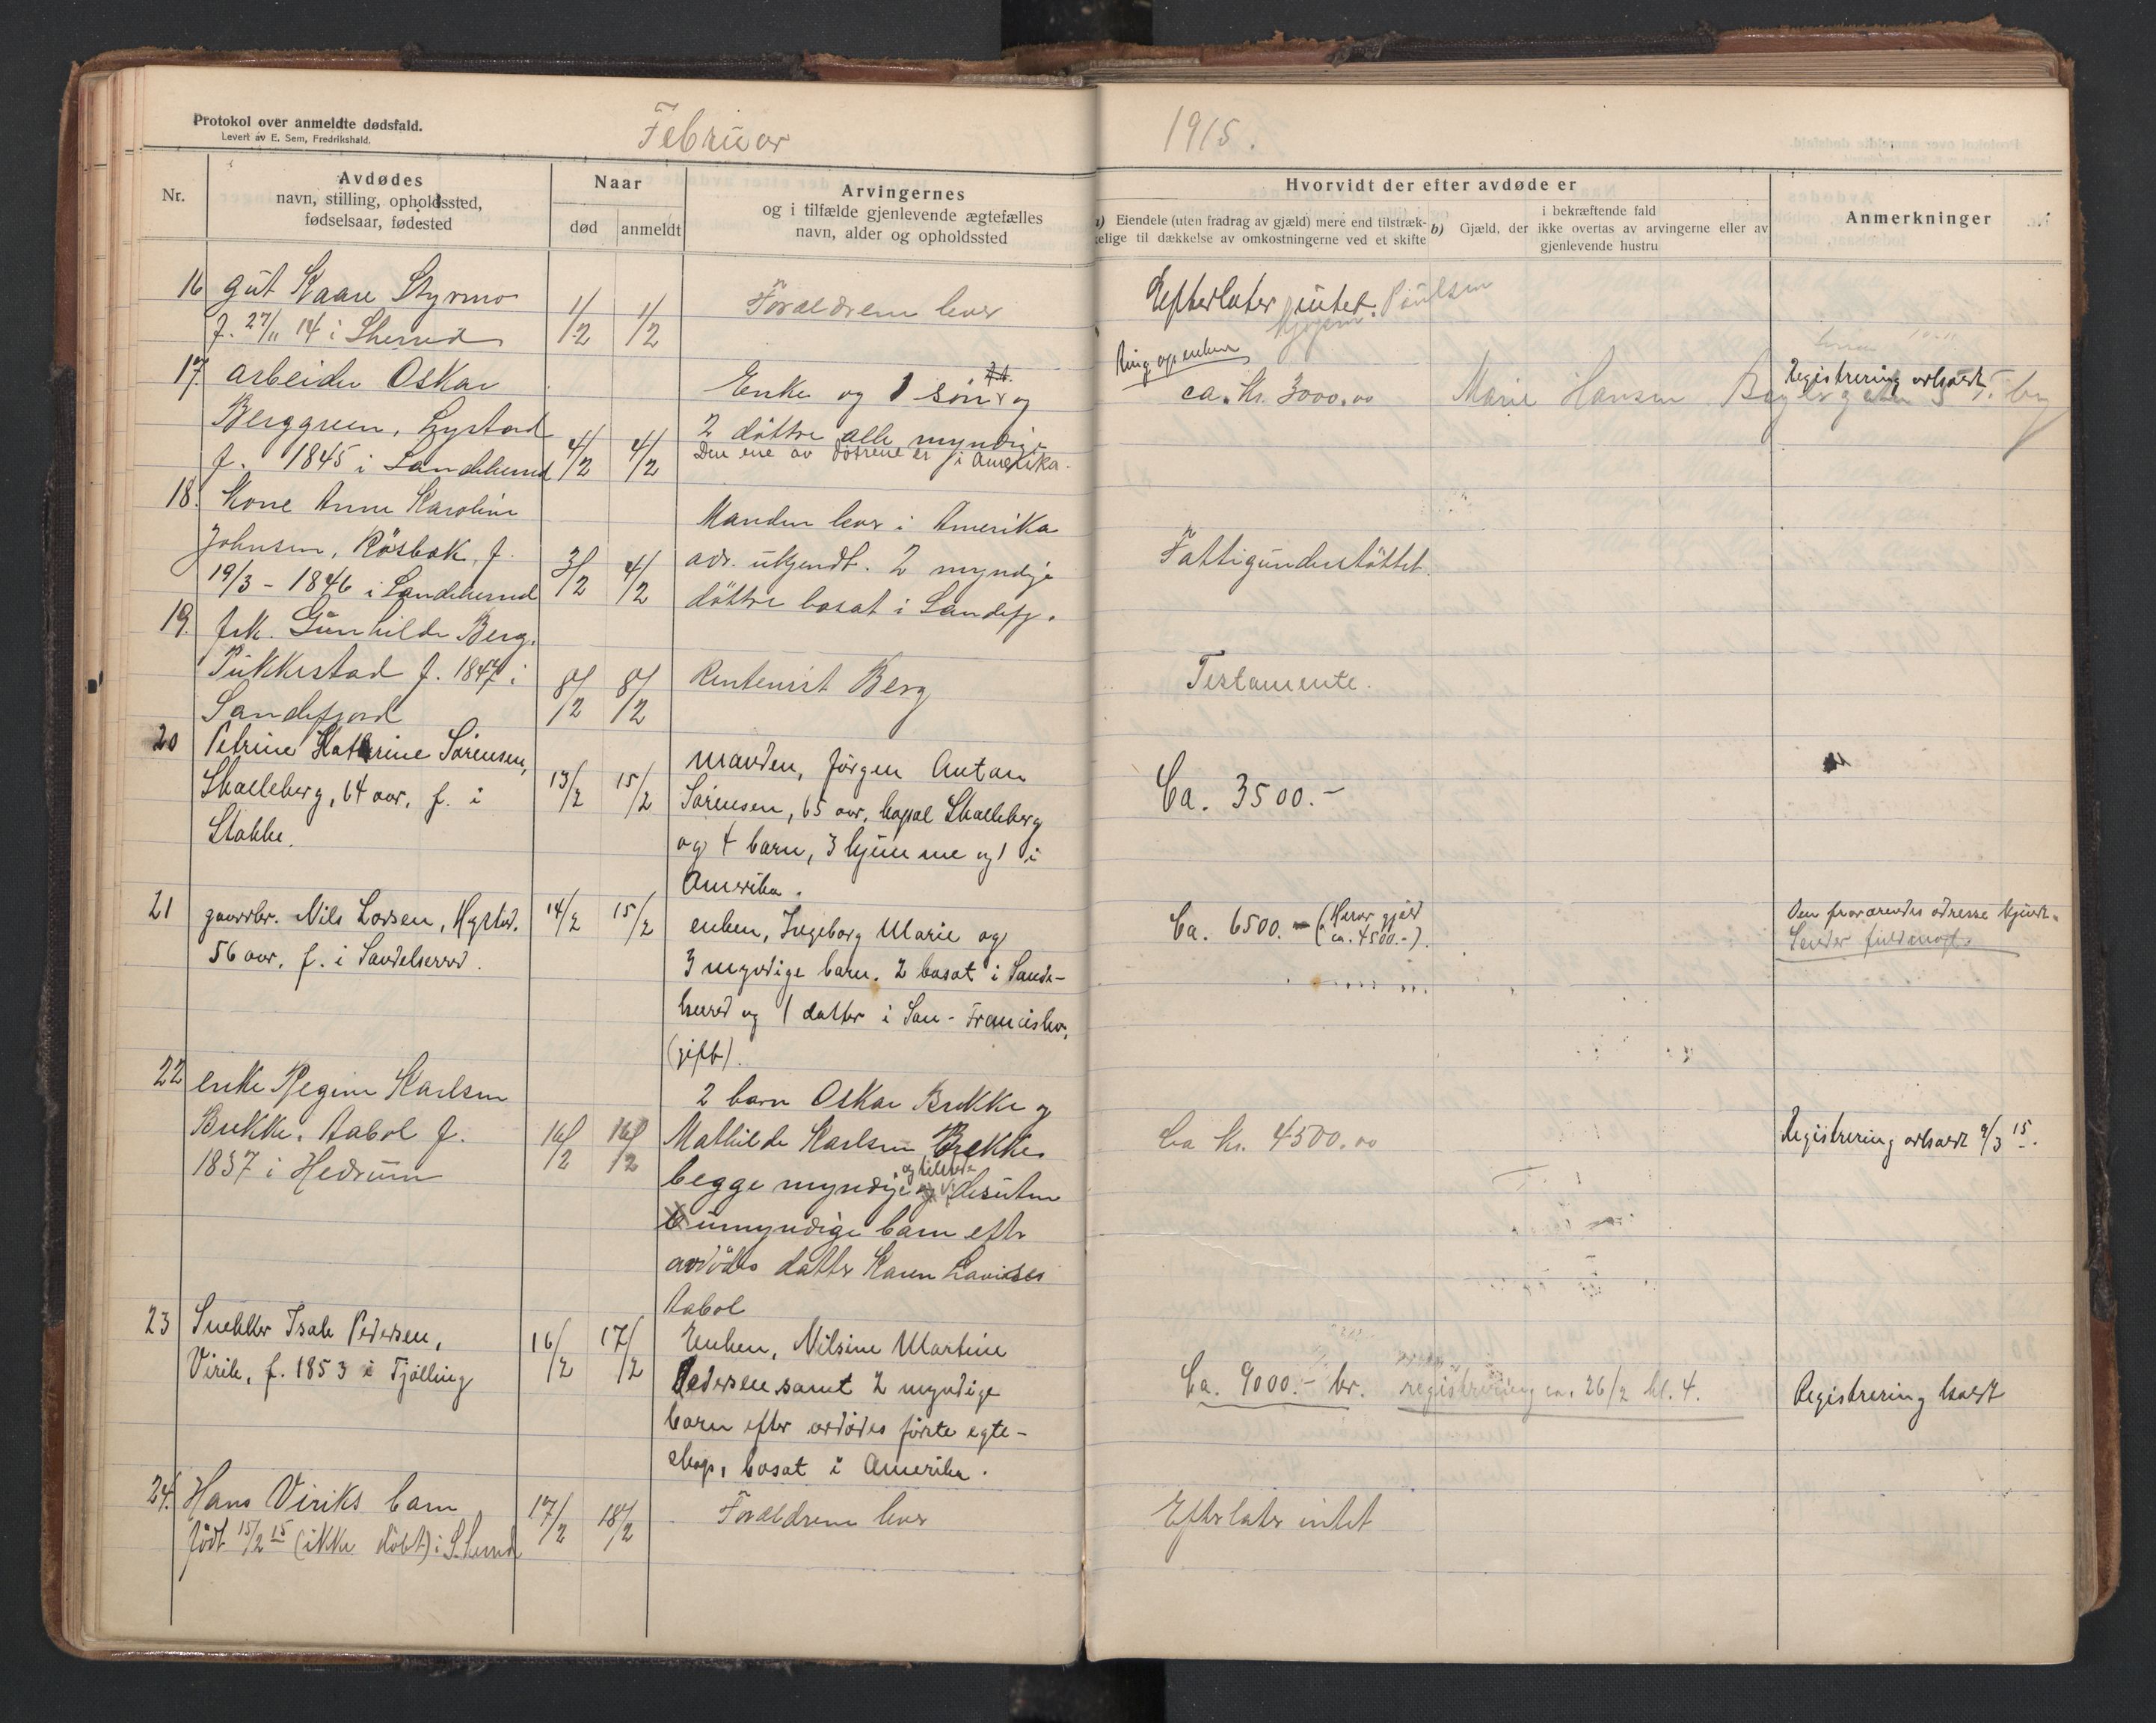 Protokol over anmeldte dødsfald.
Levert av E. Sem, Fredrikshald.
Februar
1915.
Nr.
Avdødes
navn, stilling, opholdssted,
fødselsaar, fødested
Naar
død
anmeldt
Arvingernes
og i tilfælde gjenlevende ægtefælles
navn, alder og opholdssted
Hvorvidt der efter avdøde er
a) Eiendele (uten fradrag av gjæld) mere end tilstræk-
kelige til dækkelse av omkostningerne ved et skifte
b) Gjæld, der
i bekræftende fald
ikke overtas av arvingerne eller av
gjenlevende hustru
Anmerkninger
16 gut Kaare Styrmo
f. 27/11 14 i Sherred
1/2 1/2
Foraeldrene lever
Efterlater intet. Poulsen
17. arbeider Oskar
Berggreen, Lystad
f. 1845 i Sandeherred
4/2 4/2
Enke og 1 sön og
2 döttre alle myndige
Den ene av döttrene er i Amerika.
Ring op enken
ca. Kr. 3000.00
Marie Hansen
Registrering avholdt
18. Kone Anne Karoline
Johnsen, Røsbæk, f.
19/3 - 1846 i Sandeherred
3/2 4/2
Manden lever i Amerika
adr. ukjendt. 2 myndige
döttre bosat i Sandefj.
Fattigunderstöttet.
19. frk. Gunhilde Berg.
Pukkestad f. 1847 i
Sandefjord
8/2 8/2
Rentenist Berg
Testamente.
20 Petrine Kathrine Sørensen,
Skalleberg, 64 aar, f. i
Stokke.
13/2 15/2
manden, Jørgen Anton
Sørensen, 65 aar, bopæl Skalleberg
og 4 barn, 3 hjemme og 1 i
Amerika.
Ca. 3500.-
21 gaardbr. Nils Larsen, Hystad.
56 aar, f. i Sandeherred.
14/2 15/2
enken, Ingeborg Marie og
3 myndige barn. 2 bosat i Sande-
herred og 1 datter i San-Francisko,
(gift).
Ca. 6500.- (Herav gjæld
ca. 4500.-).
Den fraværendes adresse kjendt.
Sender fuldmagt.
22 enke Regine Karlsen
Brekke, Aabol f.
1837 i Hedrum
16/2 16/2
2 barn Oskar Brekke og
Mathilde Karlsen Brekke
begge myndige og tilstede desuten
umyndige barn efter
avdødes datter Karen Lovise
Aabol
Ca Kr. 4500.00
Registrering avholdt 9/3 15.
23 Snekker Isak Pedersen,
Virik, f. 1853 i Tjølling
16/2 17/2
Enken, Nilsine Martine
Pedersen samt 2 myndige
barn efter avdødes første egte-
skap, bosat i Amerika.
Ca. 9000.- kr. registrering 26/2 kl. 4.
Registrering holdt
24. Hans Viriks barn
født 15/2 15 (ikke døbt) i S.herred
17/2 18/2
Foraeldrene lever
Efterlater intet